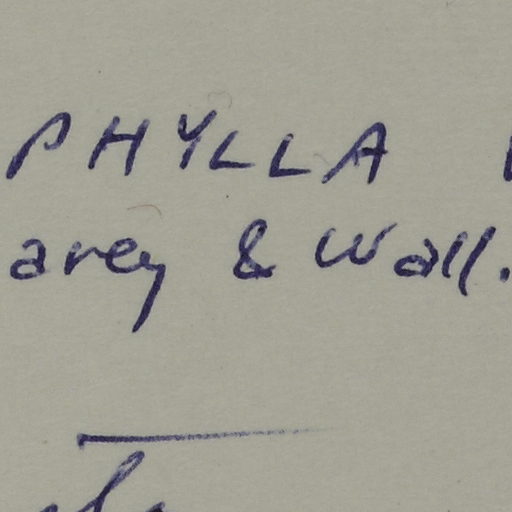 PHYLLA
arey & Wall.